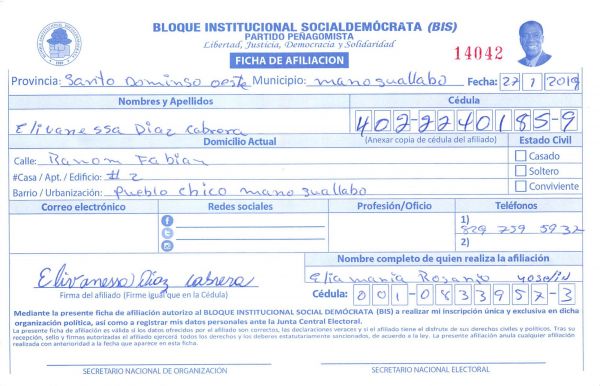 BLOQUE INSTITUCIONAL SOCIALDEMÓCRATA (BIS)
PARTIDO PEÑAGOMISTA
Libertad, Justicia, Democracia y Solidaridad
FICHA DE AFILIACION
14042
Provincia: Santo Dominso oeste Municipio: manoguallabo Fecha: 27 1 2019
Nombres y Apellidos Cédula
Elivanessa Diaz Cabrera 402-2240185-9
Domicilio Actual (Anexar copia de cédula del afiliado) Estado Civil
Calle: Ramom Fabian Casado
#Casa / Apt. / Edificio: #2 Soltero
Barrio / Urbanización: Pueblo chico manoguallabo Conviviente
Correo electrónico Redes sociales Profesión/Oficio Teléfonos
1) 829 759 5932
2)
Nombre completo de quien realiza la afiliación
Elivanessa Diaz cabrera Eliamania Rosario yoselin
Firma del afiliado (Firme igual que en la Cédula) Cédula: 001-0833957-3
Mediante la presente ficha de afiliación autorizo al BLOQUE INSTITUCIONAL SOCIAL DEMÓCRATA (BIS) a realizar mi inscripción única y exclusiva en dicha
organización política, así como a registrar mis datos personales ante la Junta Central Electoral.
La presente ficha de afiliación es válida si los datos ofrecidos por el afiliado son correctos, las declaraciones veraces y si el afiliado tiene el disfrute de sus derechos civiles y políticos. Tras su
recepción, sello y firmas autorizadas el afiliado ejercerá todos los derechos y los deberes estatutariamente sancionados, de acuerdo a la ley. La presente afiliación anula cualquier afiliación
realizada con anterioridad a la fecha que aparece en esta ficha.
SECRETARIO NACIONAL DE ORGANIZACIÓN SECRETARIO NACIONAL ELECTORAL